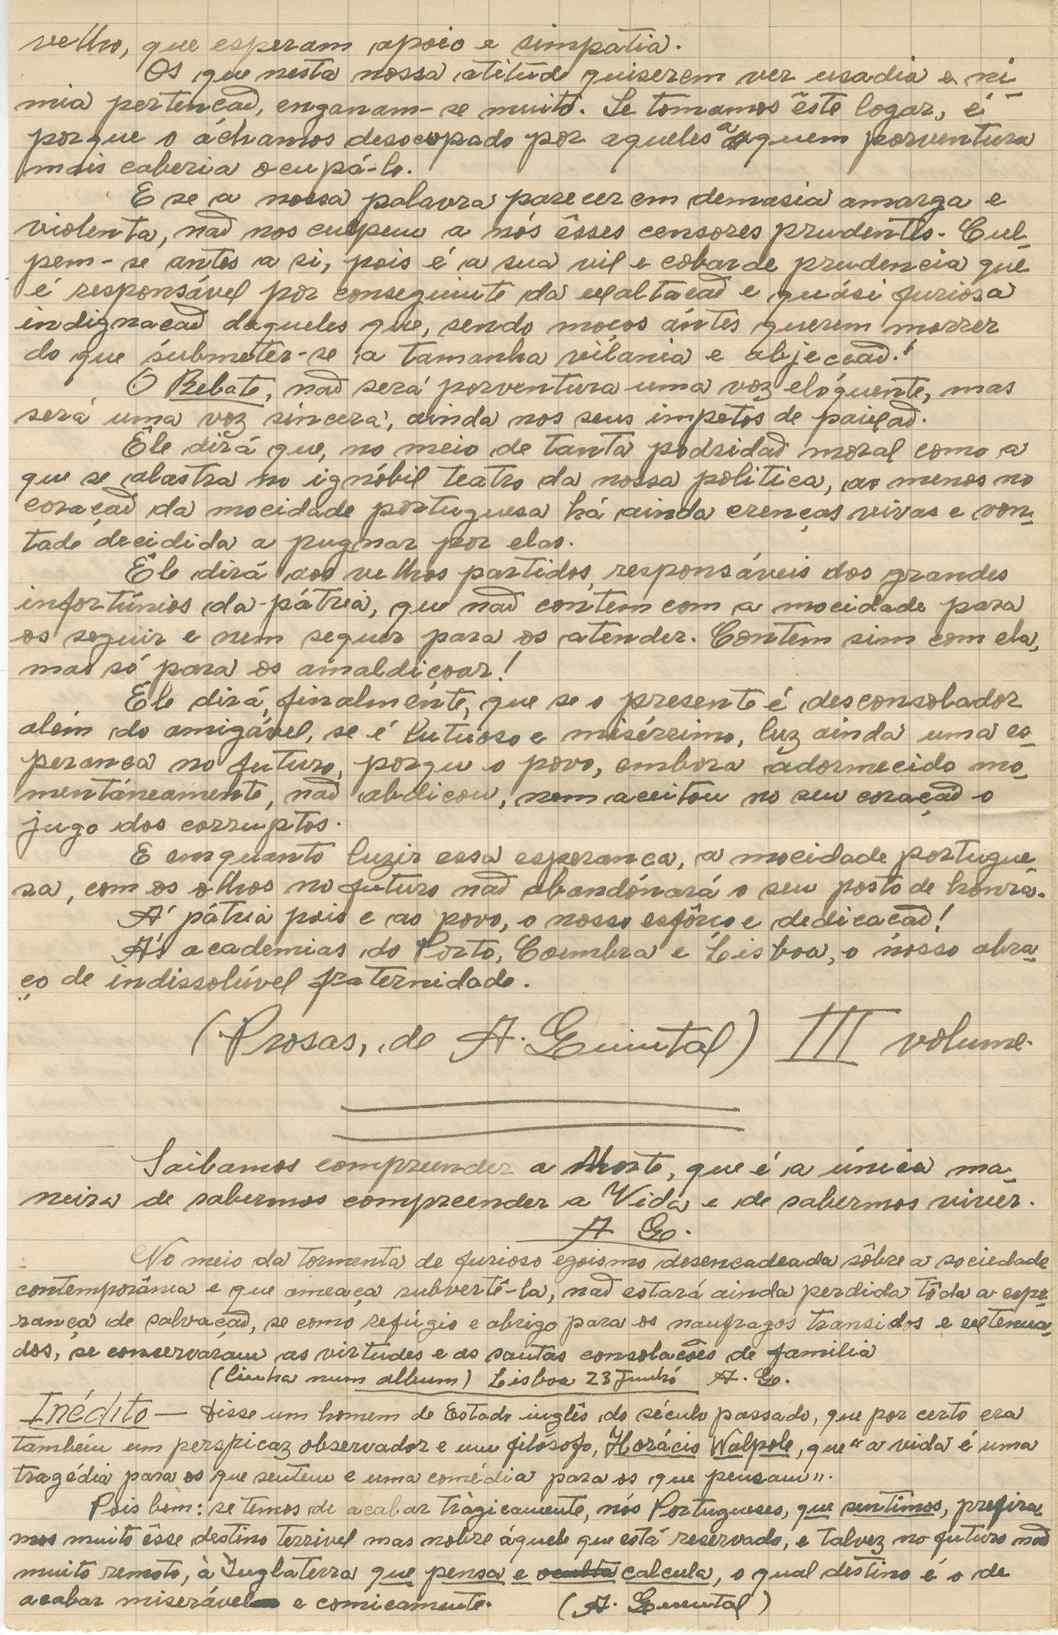 velho, que esperam apoio e simpatia.
Os que nesta nossa atitude quiserem ver usadia e ni-
mia pertenção, enganam-se muito. Se tomamos êste logar, é
porque o áchamos desocupado por aqueles a quem porventura
mais caberia ocupá-lo.
E se a nossa palavra parecer em demasia amarga e
violenta, não nos culpem a nós êsses censores prudentes. Cul-
pem-se antes a si, pois é a sua vil e cobarde prudencia que
é responsável por conseguinte da exaltação e quási furiosa
indignação daqueles que, sendo moços ántes querem morrer
do que submeter-se a tamanha vilania e abjecção!
O Rebate, não será porventura uma voz eloquente, mas
será uma voz sincera, ainda nos seus impetos de paixão.
Êle dirá que, no meio de tanta podridão moral como a
que se alastra no ignóbil teatro da nossa politica, ao menos no
coração da mocidade portuguesa há ainda crenças vivas e von-
tade decidida a pugnar por elas.
Êle dirá aos velhos partidos, responsáveis dos grandes
infortúnios da pátria, que não contem com a mocidade para
os seguir e nem sequer para os atender. Contem sim com ela,
mas só para os amaldiçoar!
Êle dirá, finalmente, que se o presente é desconsolador
além do amigável, se é lutuoso e misérrimo, luz ainda uma es-
perança no futuro, porqu o povo, embora adormecido mo-
mentáneamente, não abdicou, nem aceitou no seu coração o
jugo dos corruptos.
E emquanto luzir essa esperança, a mocidade portugue-
sa, com os olhos no futuro não abandonará o seu posto de honra.
Á pátria pois e ao povo, o nosso esfôrço e dedicação!
Ás academias do Porto, Coimbra e Lisboa, o nosso abra-
ço de indissolúvel fraternidade.
(Prosas, de A. Quental) III volume.
Saibamos compreender a Morte, que é a única ma-
neira de sabermos compreender a Vida e de sabermos viver.
A Q.
No meio da tormenta de furioso egoismo desencadeada sôbre a sociedade
contemporânia e que ameaça subvertê-la, não estará ainda perdida tôda a espe-
rança de salvação, se como refúgio e abrigo para os naufragos transidos e extenua-
dos, se conservaram as virtudes e as santas consolações de familia
(Linha num album) Lisboa 23 Junho A. Q.
Inédito — Disse um homem de Estado inglês do século passado, que por certo era
também um perspicaz observador e um filósofo, Horácio Walpole, que "a vida é uma
tragédia para os que sentem e uma comédia para os que pensam".
Pois bem: se temos de acabar tràgicamente, nós Portugueses, que sentimos, prefira-
mos muito êsse destino terrivel mas nobre áquele que está reservado, e talvez no futuro não
muito remoto, à Inglaterra que pensa e calcula, o qual destino é o de
acabar miserável e comicamente. (A. Quental)